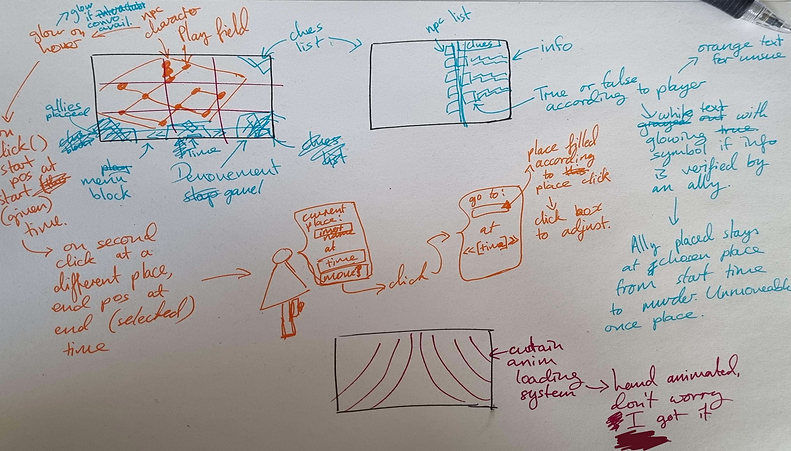 glow
if interactable
convo
avail.
glow on
hover
npc
character
Play field
clues
list
npc list
clues
info
True or false
according to player
orange text
for unsure
white text
with
glowing true
symbol if info
is verified by
an ally.
Ally placed stays
at chosen place
from start time
to murder. Unmoveable
once place.
allies
placed
menu
block
Time
Denouement
panel
clues
list
on
click()
start
pos at
start
(given)
time.
on second
click at a
different place,
end pos at
end (selected)
time
current
place:
at
time
move?
click
go to:
at
<<[time]>>
place filled
according
to
place click
click box
to adjust.
curtain
anim
loading
system
hand animated,
don't worry
I got it